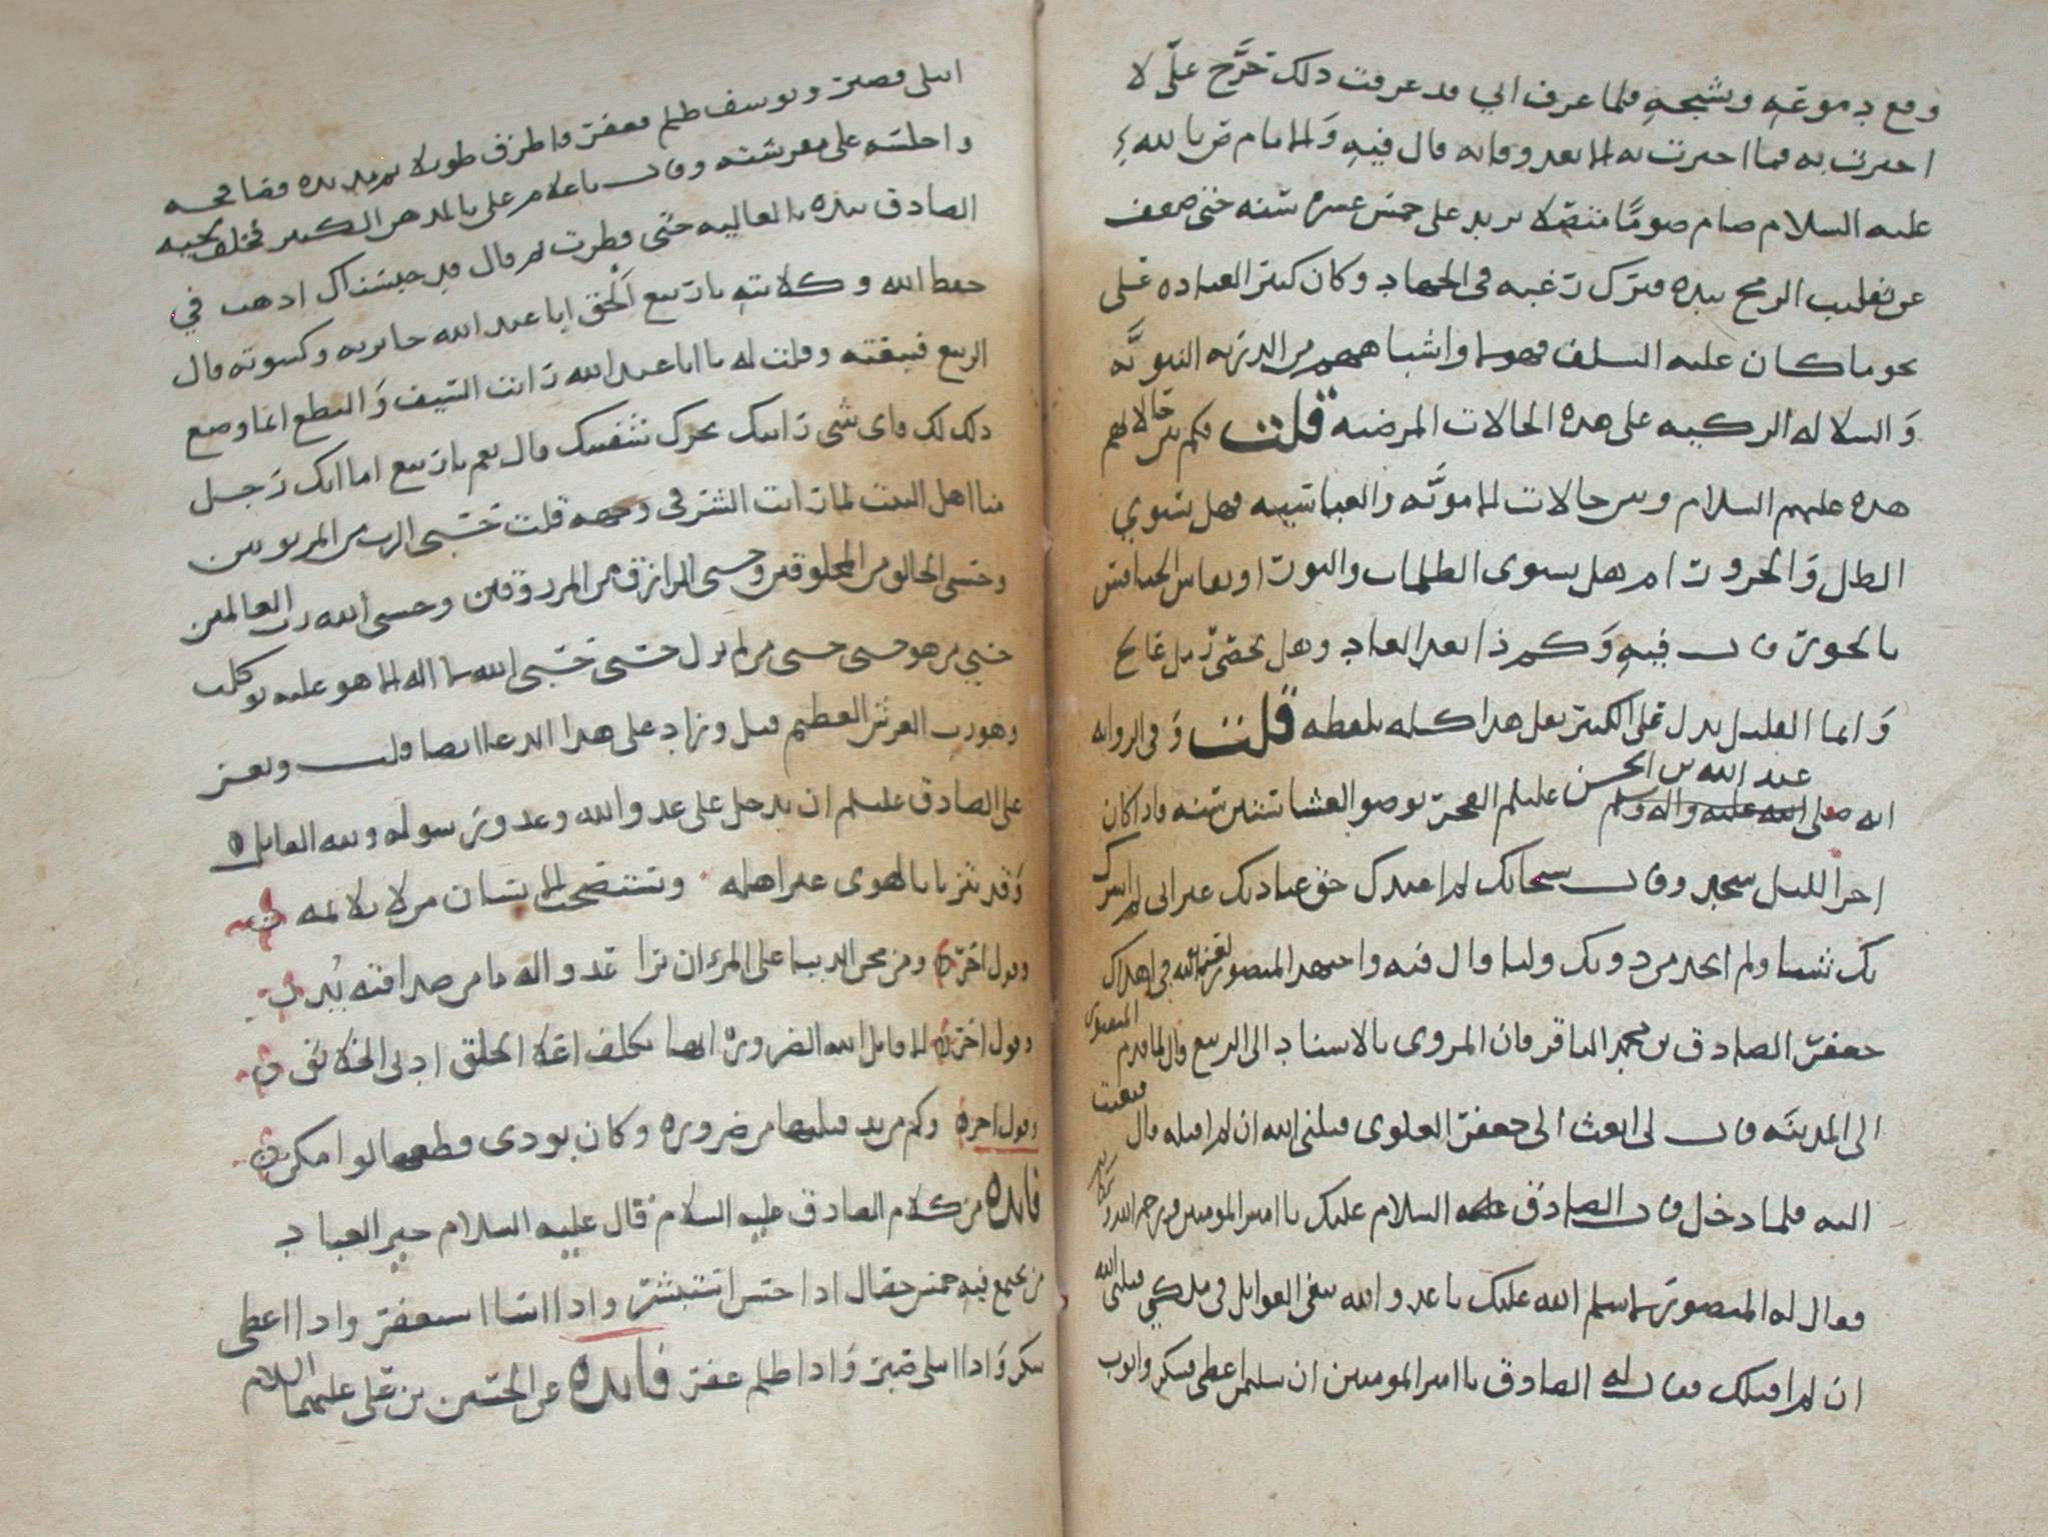 وقع دموعه وشيجه فلما عرف اني قد عرفت ذلك حرّج عليّ لا
اخبرت به فما اخبرت به الا بعد وفاته قال فيه والامام ض بالله
عليه السلام صام صومًا متصلا يزيد على خمس عشره سنه حتى ضعف
عن تقليب الرمح بيده فترك رغبه في الجهاد وكان كثير العباده على
نحو ما كان عليه السلف فهولا واشباههم من الذريه النبويّه
والسلاله الزكيه على هذه الحالات المرضيه قلت فكم بين حالاتهم
هذه عليهم السلام وبين حالات الامويّه والعباسيه فهل يستوي
الظل والحرور ام هل يستوي الظلمات والنور او يقاس الخنافس
بالحور قال فيه وكم ذا نعد العاد وهل يحصى رمل عالج
وانما القليل يدل على الكثير نقل هذا كله بلفظه قلت وفي الروايه
انه صلى عبد الله بن الحسن عليلم الفجر بوضو العشا ستين سنه واذا كان
اخر الليل سجد وقال سبحانك لم اعبدك حق عبادتك غير اني لم اشرك
بك شيئا ولم اتخذ من دونك وليا قال فيه واجتهد المنصور لعنه الله في اهلاك
جعفر الصادق بن محمد الباقر فان المروى بالاسناد الى الربيع قال لما قدم المنصور
الى المدينه قال لى ابعث الى جعفر العلوى قتلنى الله ان لم اقتله قال فبعثت
اليه فلما دخل قال الصادق عليه السلام عليك يا امير المومنين ورحمه الله وبركاته
فقال له المنصور لا سلم الله عليك يا عدو الله تبغي الغوايل في ملكي قتلني الله
ان لم اقتلك فقال له الصادق يا امير المومنين ان سليمن اعطى فشكر وايوب
ابتلى فصبر ويوسف ظلم فغفر فاطرق طويلا ثم مد يده فصافحه
واجلسه على مفرشته وقال يا غلام علي بالمدهن الكبير فغلف لحيه
الصادق بيده بالغاليه حتى قطرت ثم قال قد حبسناك اذهب في
حفظ الله وكلايته يا ربيع الحق ابا عبد الله جايزته وكسوته قال
الربيع فتبعته وقلت له يا ابا عبد الله رايت السيف والنطع انما وضع
ذلك لك فاى شى رايتك تحرك شفتيك قال نعم يا ربيع اما انك رجل
منا اهل البيت لما رايت الشر في وجهه قلت حسبى الرب من المربوبين
وحسبى الخالق من المخلوقين وحسبى الرازق من المرزوقين وحسبى الله رب العالمين
حسبي من هو حسبى حسبى من لم يزل حسبى حسبى الله لا اله الا هو عليه توكلت
وهو رب العرش العظيم قيل وزاد على هذا الدعا ايضا قلت ويعز
على الصادق عليلم ان يدخل على عدو الله وعدو رسوله ولله القايل
وقد يتزيا بالهوى غير اهله وتستصحب الانسان من لا يلايمه
وقول اخر ومن محن الدنيا على المرء ان يرا عدوا له ما من صداقته بُد
وقول اخر الا قاتل الله الضروره انها تكلف اعلا الخلق ادنى الخلايق
وقول اخر وكم من يد قبلتها من ضروره وكان بودى قطعها لو امكن
فايده من كلام الصادق عليه السلام قال عليه السلام خير العباد
من يجتمع فيه خمس خصال اذا احسن استبشر واذا اسا استغفر واذا اعطى
شكر واذا ابتلى صبر واذا ظلم غفر فايده عن الحسين بن علي عليهما السلام